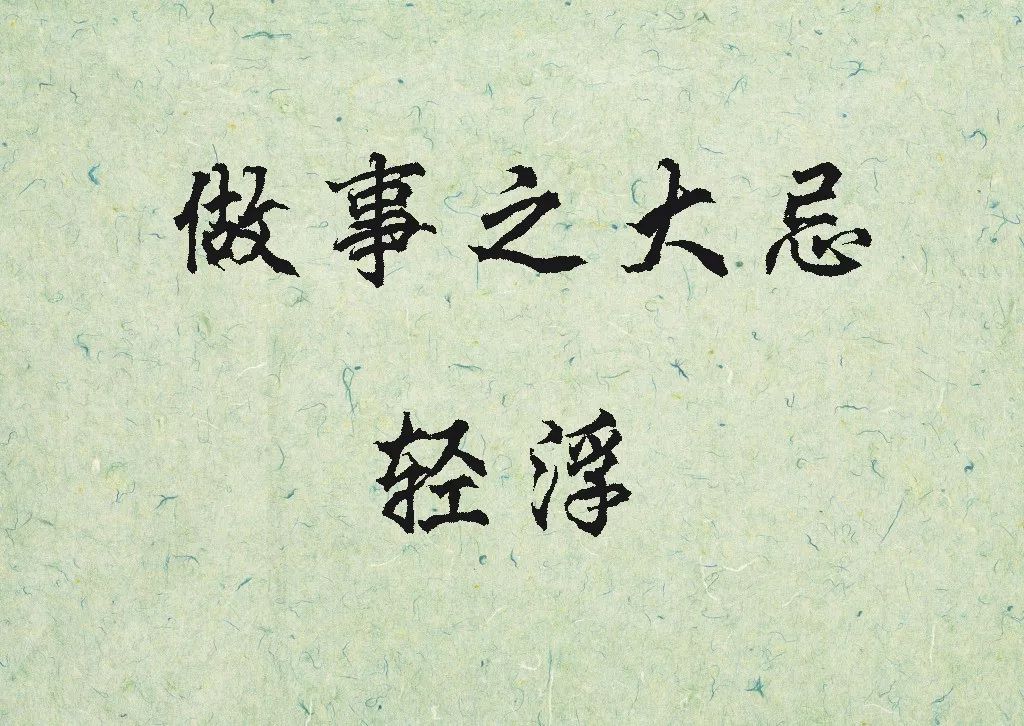 做事之大忌
轻浮